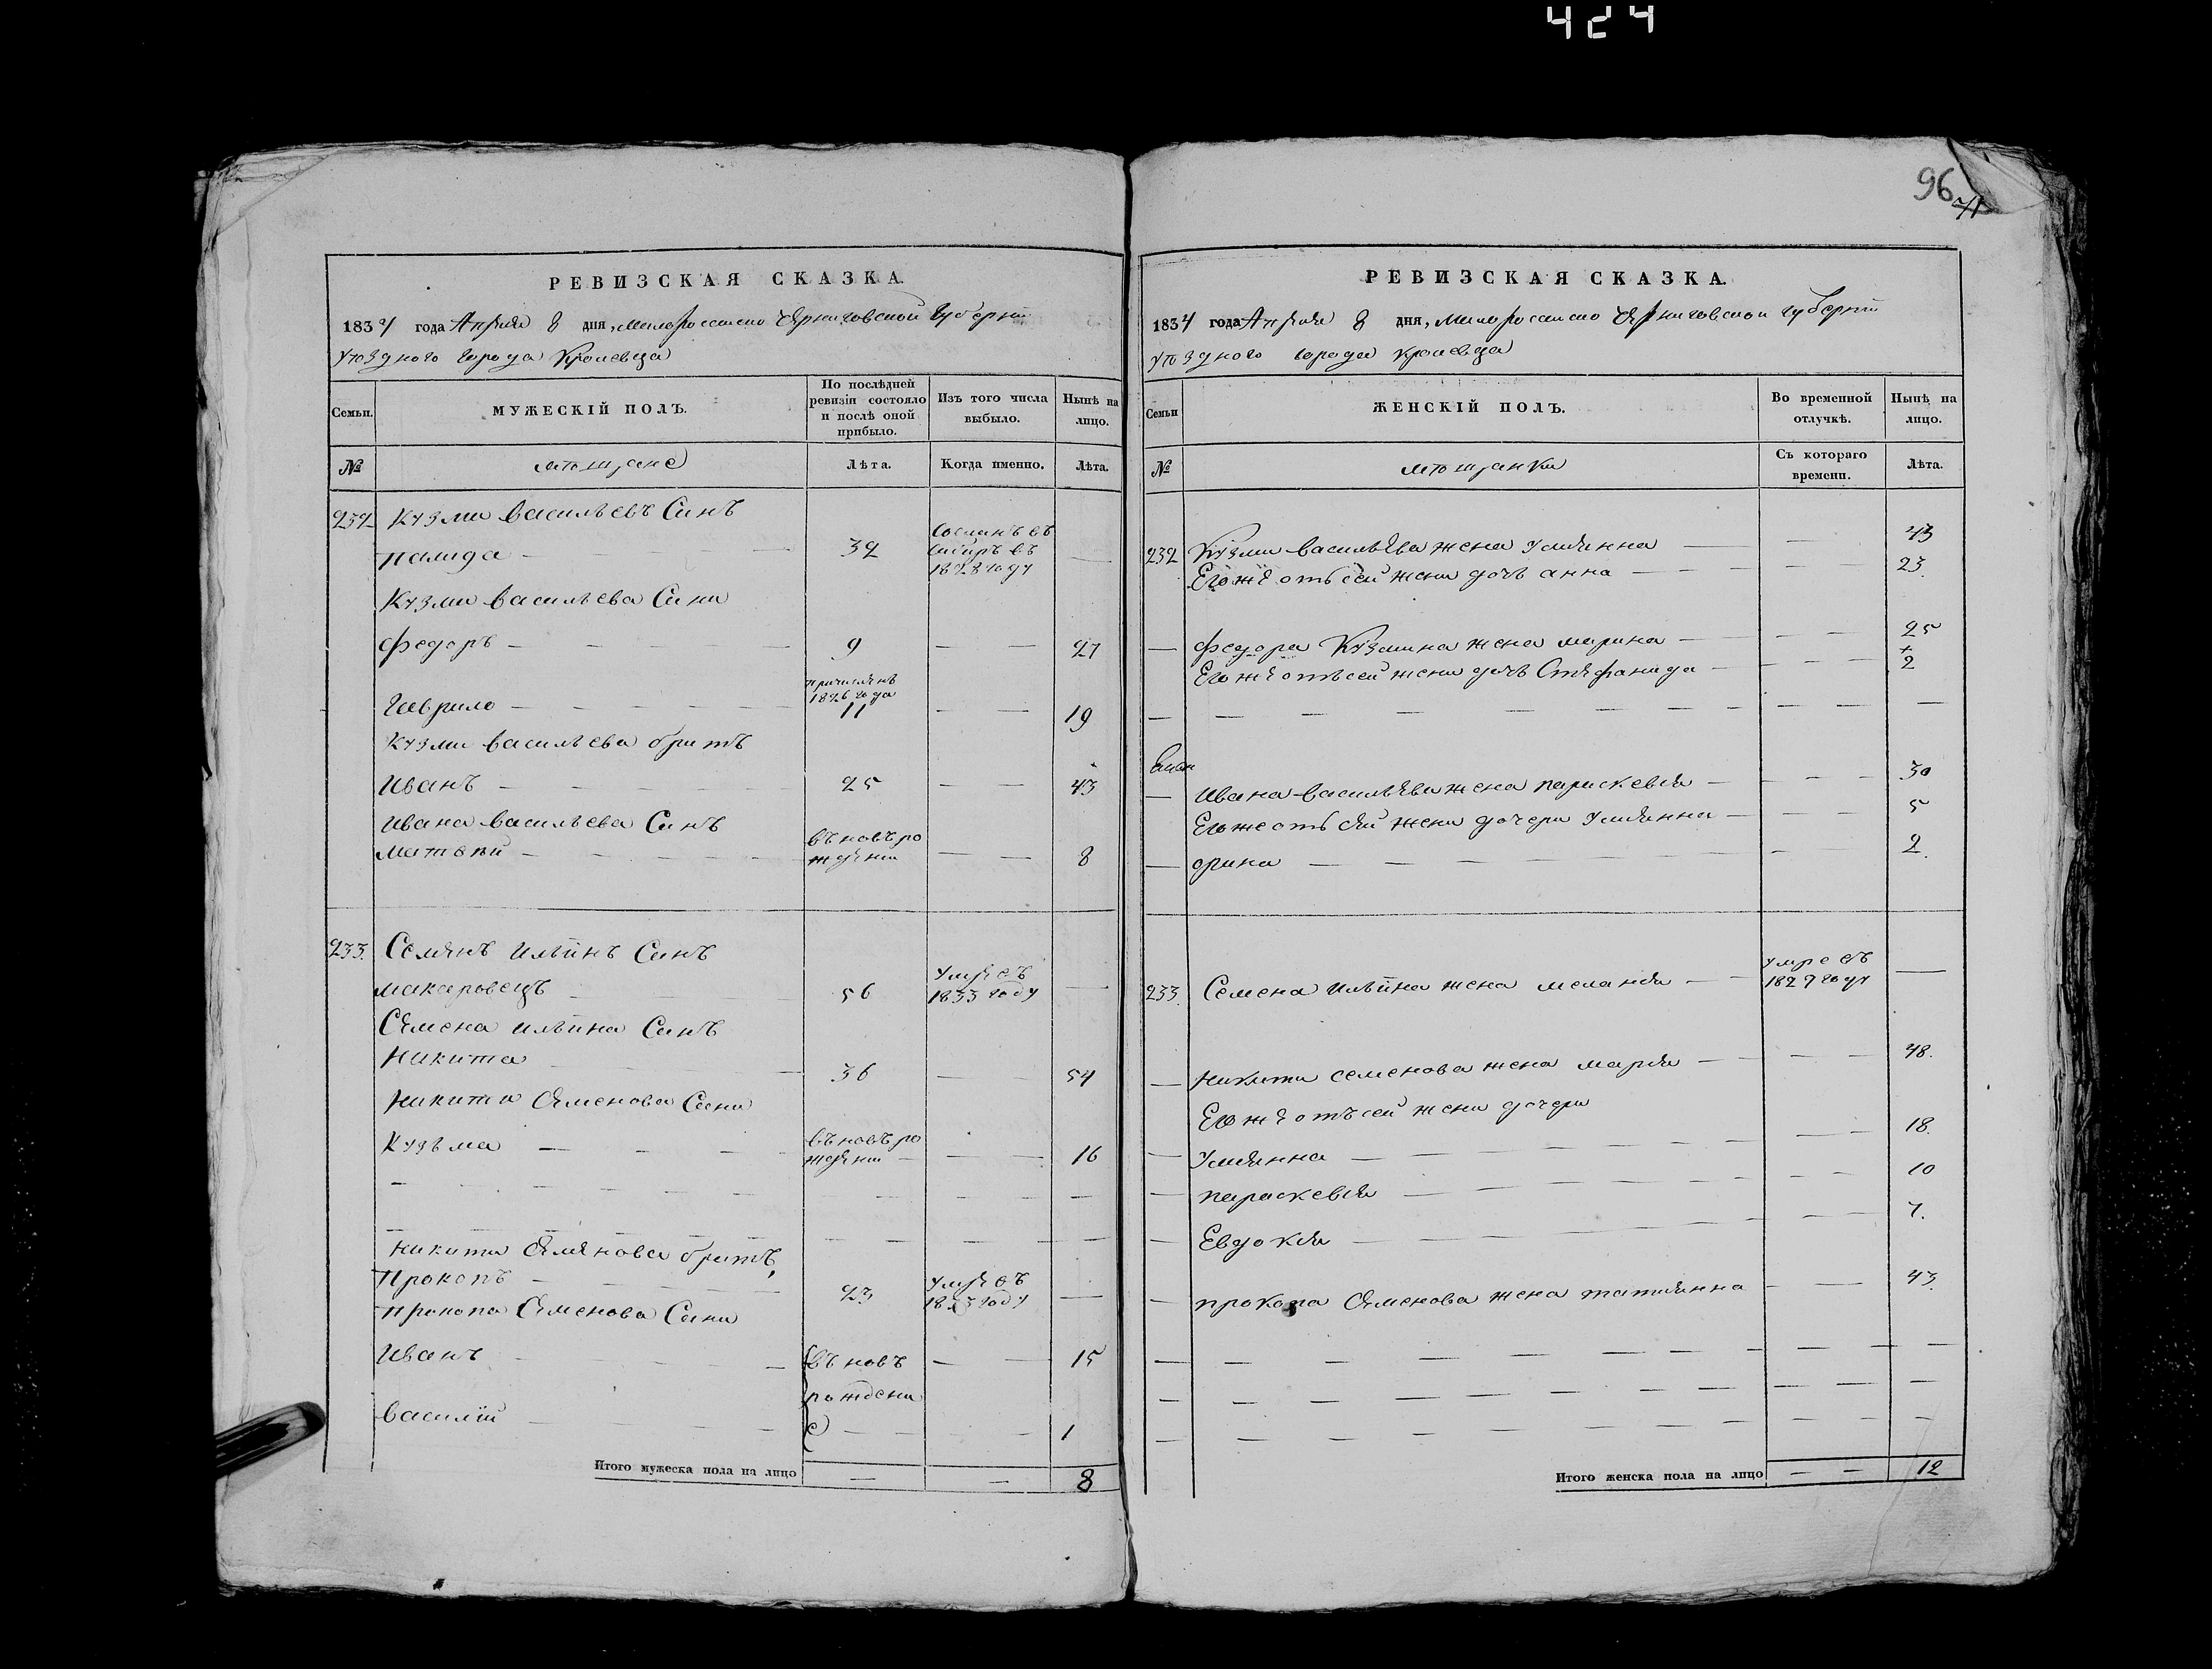 424
96
71
РЕВИЗСКАЯ СКАЗКА.
1834 года Апреля 8 дня, Малоросииско Черниговской Губернии
уѣздного города Кролевца
Семьи.
МУЖЕСКІЙ ПОЛЪ.
По послѣдней ревизіи состояло и послѣ оной прибыло.
Изъ того числа выбыло.
Нынѣ на лицо.
№
мѣщане
Лѣта.
Когда именно.
Лѣта.
232 Кузма Васильевъ Синъ
32 Сосланъ въ Сибиръ въ 1828 году —
Кузми Васильева Сини
Федоръ — 9 — — 27
Гаврило — причисленъ 1826 года 11 — — 19
Кузми Васильева братъ
Иванъ — 25 — — 43
Ивана Васильева Синъ
Матвѣй — въ новъ рожденни — — 8
233. Семенъ Ильинъ Синъ
Макаровецъ 56 умре въ 1833 году —
Семена Ильина Синъ
Никита — 36 — — 54
Никити Семенова Сини
Кузьма — въ новъ рожденни — — 16
Никити Семенова братъ,
Прокопъ — 23 умре въ году —
Прокопа Семенова Сини
Иванъ — въ новъ — — 15
рождени
Василій — е — — 1
Итого мужеска пола на лицо — — 8
РЕВИЗСКАЯ СКАЗКА.
1834 года Апреля 8 дня, Малоросииско Черниговской Губернии
уѣздного города Кролевца
Семьи
ЖЕНСКІЙ ПОЛЪ.
Во временной отлучкѣ.
Нынѣ на лицо.
№
мѣщанки
Съ котораго времени.
Лѣта.
232 Кузми Васильева жена Улиянна — — 43
Его же отъ сей жени дочъ Анна — — 23
— Федора Кузмина жена Марина — — 25
Его же отъ сей жени дочъ Стефанида — — 2
— Ивана Васильева жена Параскевия — — 30
Его же отъ сей жени дочери Улиянна — — 5
— Орина — — 2.
233. Семена Ильина жена Мелания — умре въ 1829 году —
— Никити Семенова жена Мария — — 48.
Его же отъ сей жени дочери
— Улиянна — — 18.
— Параскевия — — 10
— Евдокия — — 7.
— Прокопа Семенова жена Татиянна — — 43
Итого женска пола на лицо — — 12